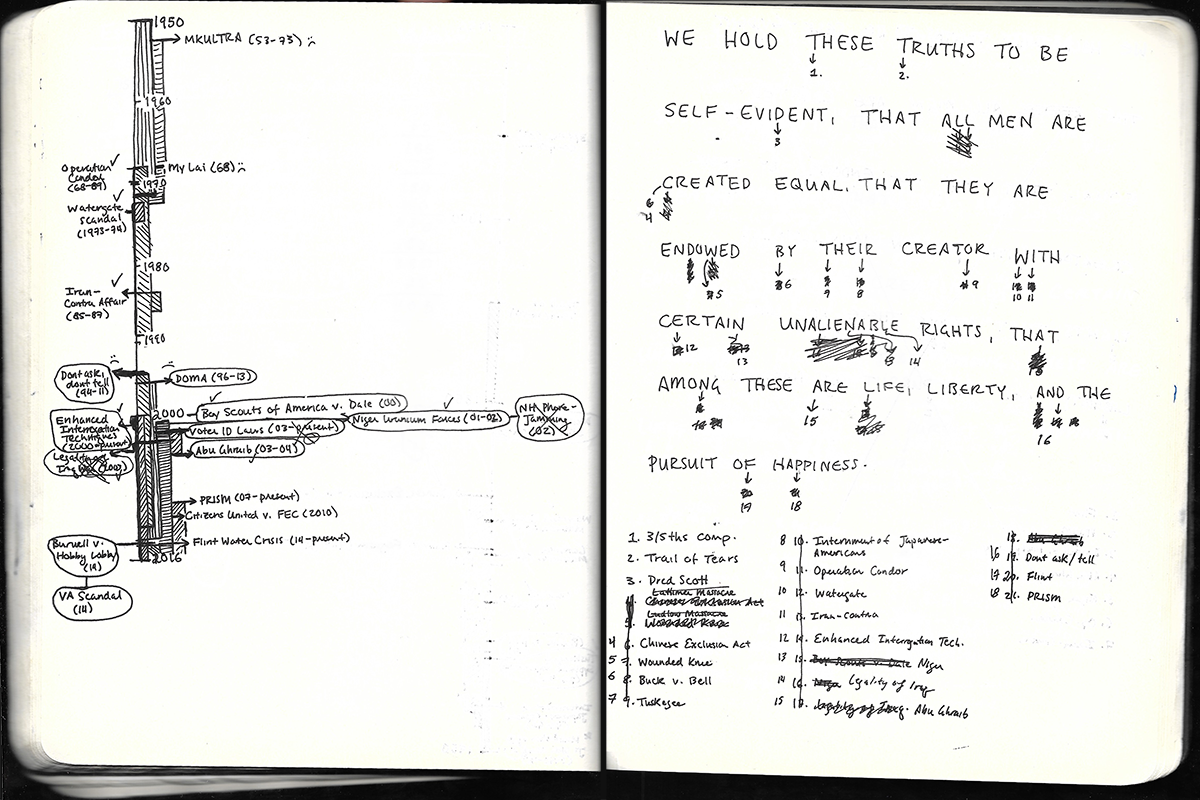 1950
MKULTRA (53-73)
1960
Operation
Condor
(68-89)
My Lai (68)
1970
Watergate
Scandal
(1973-74)
1980
Iran-
Contra Affair
(85-87)
1990
Dont ask,
dont tell
(94-11)
DOMA (96-13)
2000
Boy Scouts of America v. Dale (00)
Niger Uranium Forges (01-02)
NH Phone-
Jamming
(02)
Enhanced
Interrogation
Techniques
(2000-present)
Voter ID Laws (03-present)
Abu Ghraib (03-04)
PRISM (07-present)
Citizens United v. FEC (2010)
Flint Water Crisis (14-present)
Burwell v.
Hobby Lobby
(14)
2016
VA Scandal
(14)
WE HOLD THESE TRUTHS TO BE
1. 2.
SELF-EVIDENT, THAT ALL MEN ARE
3
CREATED EQUAL, THAT THEY ARE
4
ENDOWED BY THEIR CREATOR WITH
5 6 7 8 9 10 11
CERTAIN UNALIENABLE RIGHTS, THAT
12 13 14
AMONG THESE ARE LIFE, LIBERTY, AND THE
15 16
PURSUIT OF HAPPINESS.
17 18
1. 3/5ths Comp.
2. Trail of Tears
3. Dred Scott
Lattimer Massacre
Chinese Exclusion Act
Ludlow Massacre
Wounded Knee
4 6. Chinese Exclusion Act
5 7. Wounded Knee
6 8. Buck v. Bell
7 9. Tuskegee
8 10. Internment of Japanese-
Americans
9 11. Operation Condor
10 12. Watergate
11 13. Iran-Contra
12 14. Enhanced Interrogation Tech.
13 15. Boy Scouts v. Dale Niger
14 16. Legality of Iraq
15 17. Legality of Iraq. Abu Ghraib
18. Abu Ghraib
16 19. Dont ask/tell
17 20. Flint
18 21. PRISM